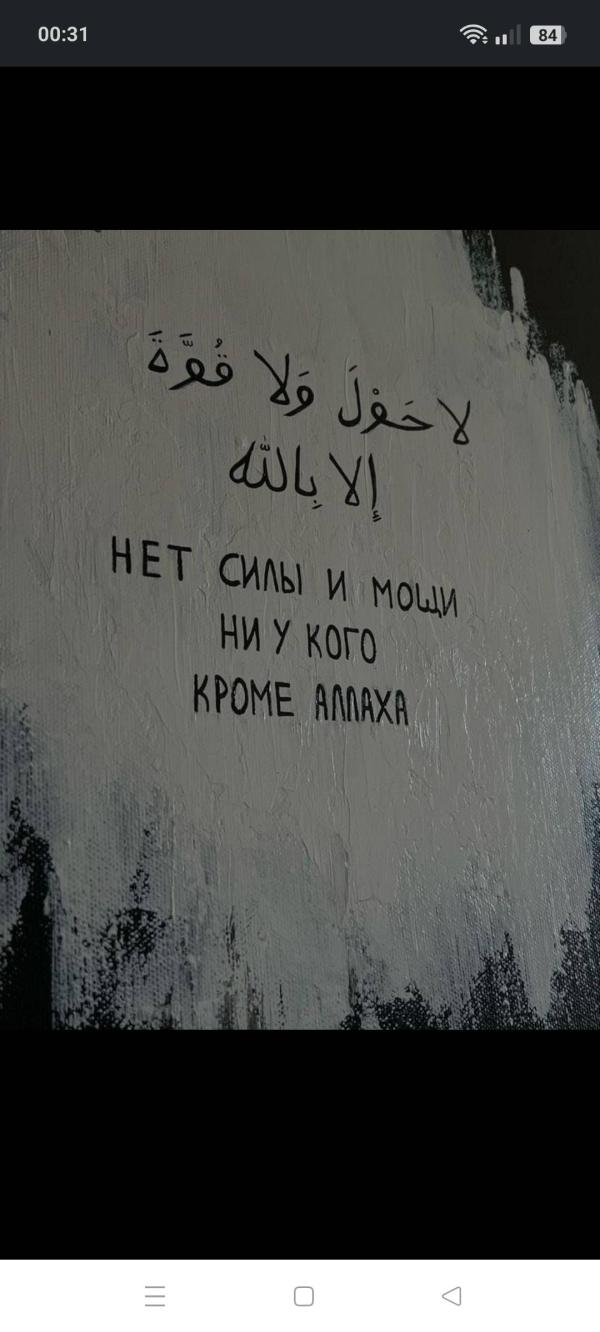 00:31
84
لا حَوْلَ وَلا قُوَّةَ
إِلا بِاللّٰه
НЕТ СИЛЫ И МОЩИ
НИ У КОГО
КРОМЕ АЛЛАХА